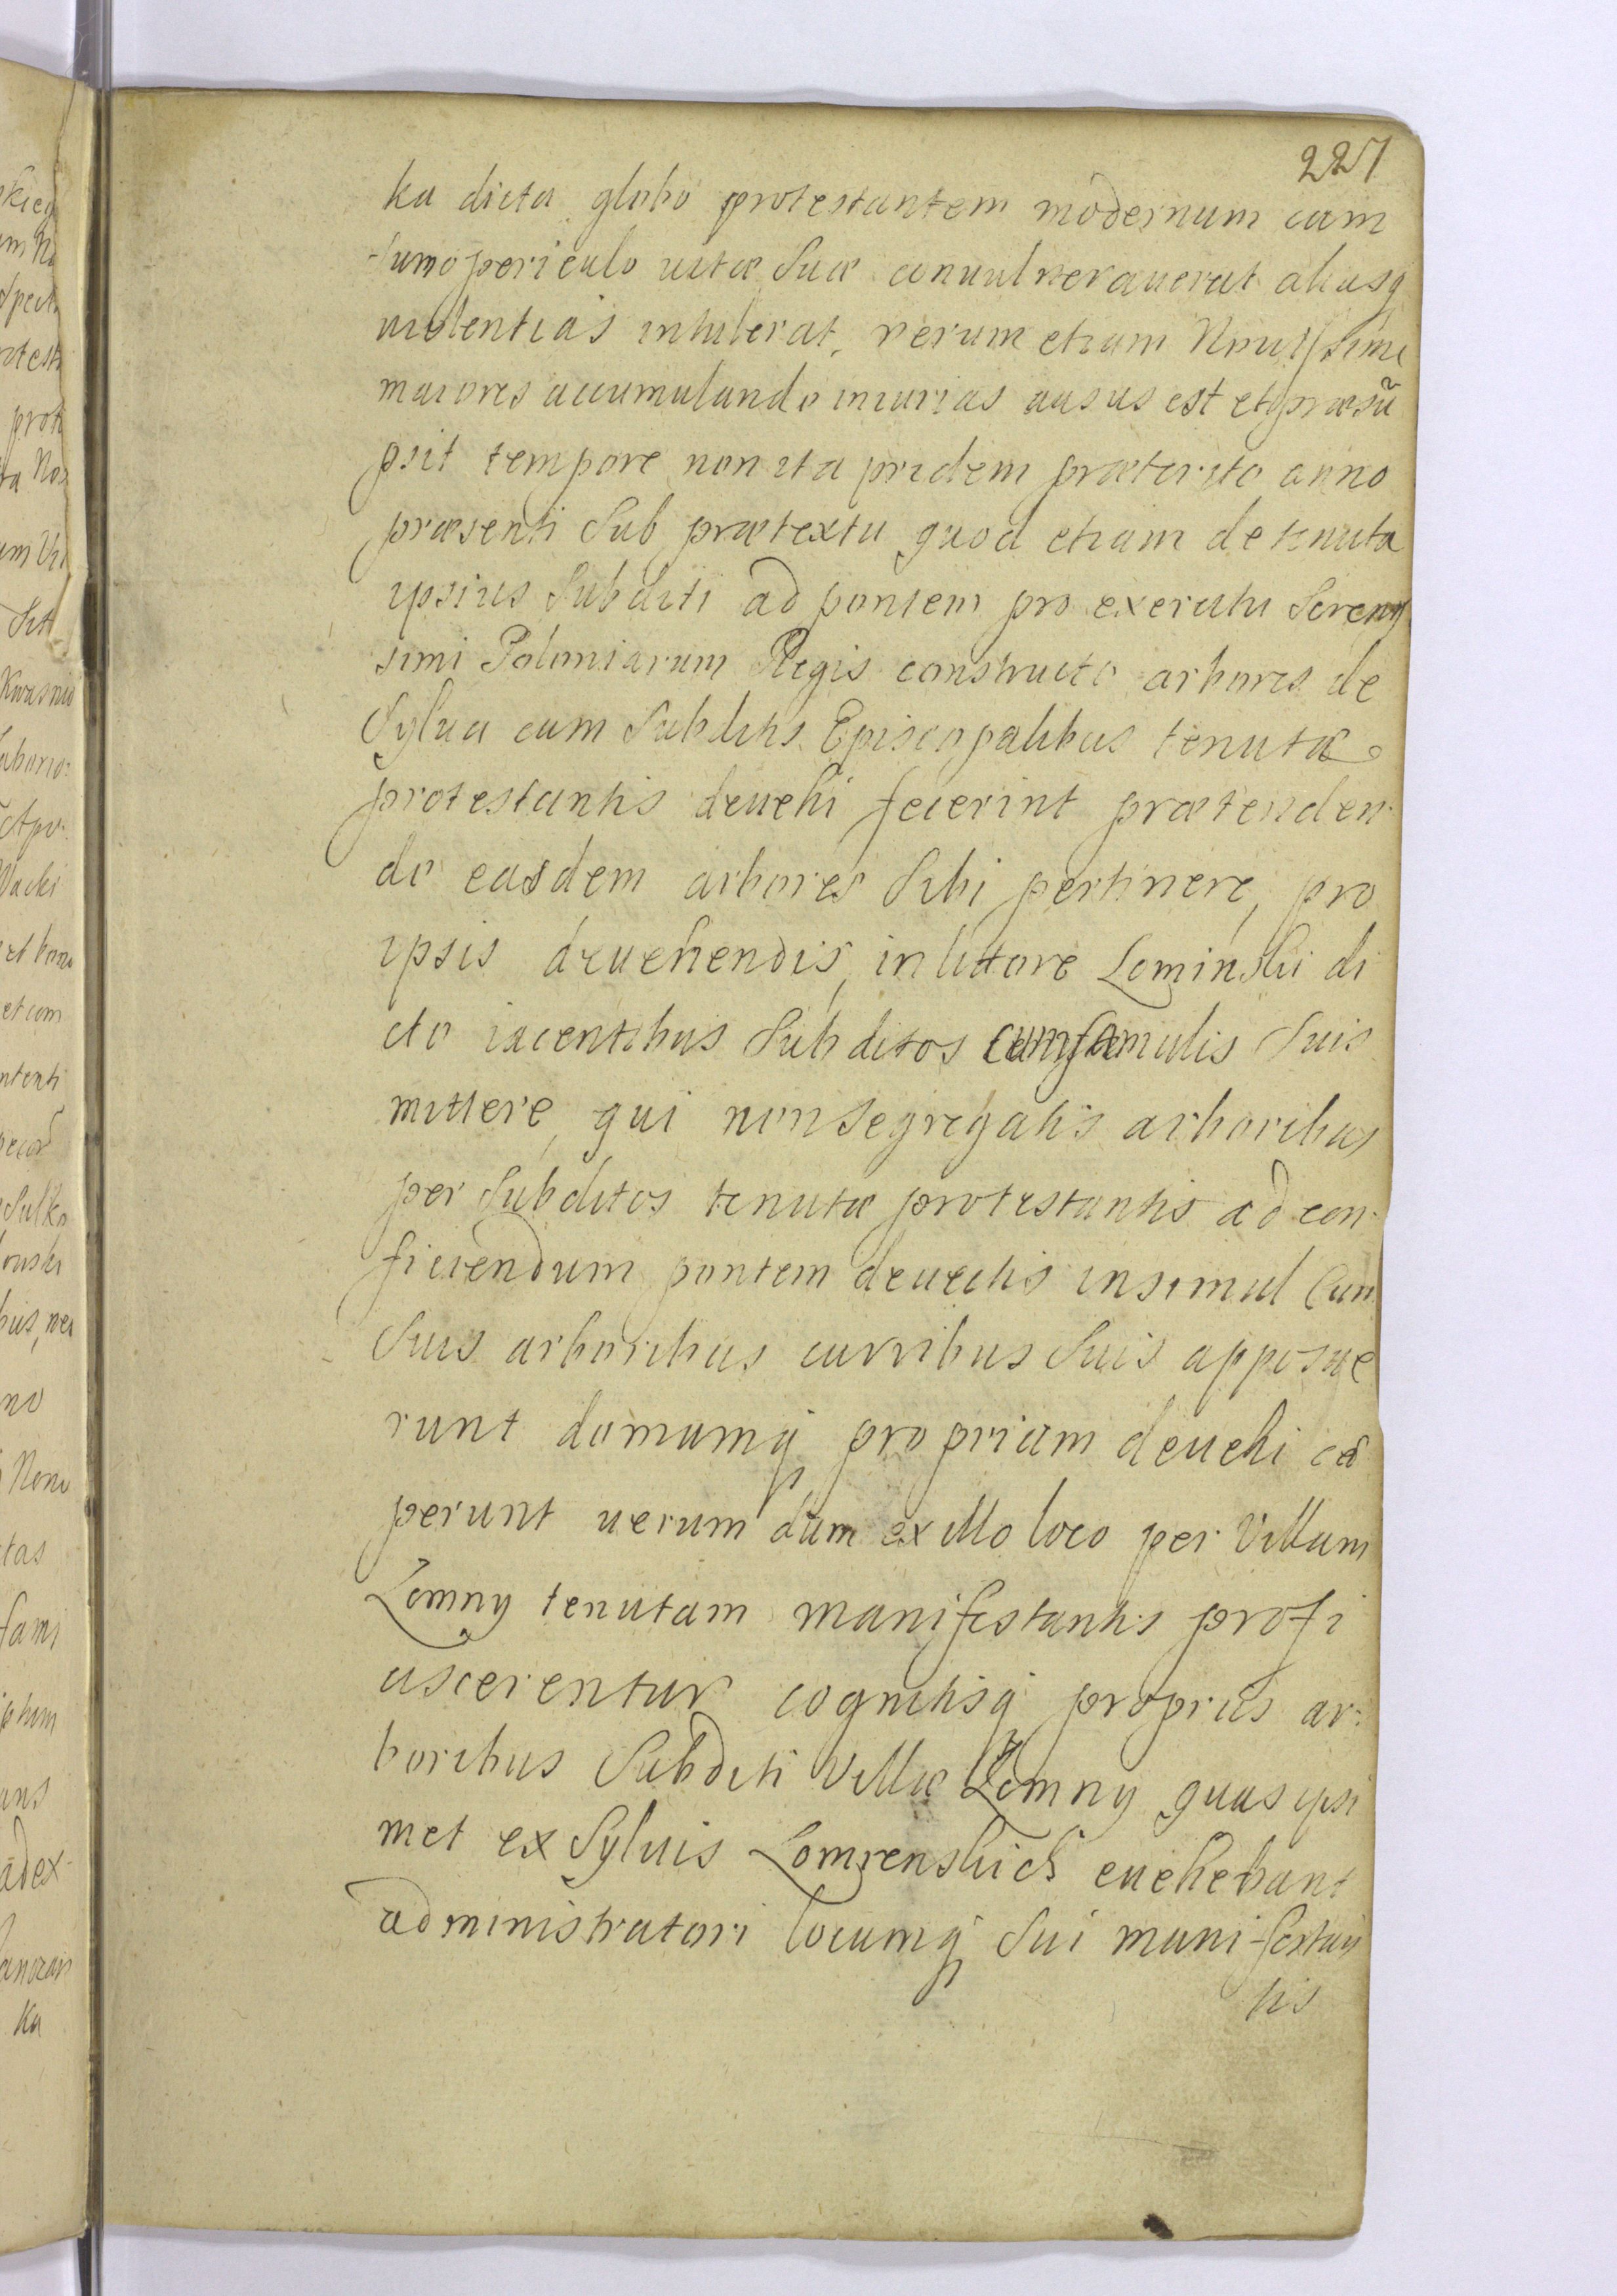 227
ka dicta globo protestantem modernum cum
sumo periculo uitæ suæ conuulnerauerat aliasq
uiolentias intulerat, verum etiam Nouissime
maiores accumulando iniurias ausus est et præsũ
psit tempore non ita pridem præterito anno
præsenti sub prætextu quod etiam de tenuta
ipsius subditi ad pontem pro exercitu Sereniss
simi Poloniarum Regis constructo arbores de
Sylua cum Subditis Episcopalibus tenutæ
protestantis deuehi fecerint prætenden
do easdem arbores sibi pertinere, pro
ipsis deuehendis, in littore Lominskii di
cto iacentibus Subditos cum famulis suis
mittere, qui non segregatis arboribus
per subditos tenutæ protestantis ad con
ficiendum pontem deuectis insimul cum
suis arboribus curribus suis apposue
runt domumq propriam deuehi cæ
perunt uerum dum ex illo loco per Villam
Lomny tenutam manifestantis profi
ciscerentur cognitisq propriis ar:
boribus Subditi Villæ Lomny quas ipsi
met ex Syluis euehebant
administratori locumq sui manifestan
tis